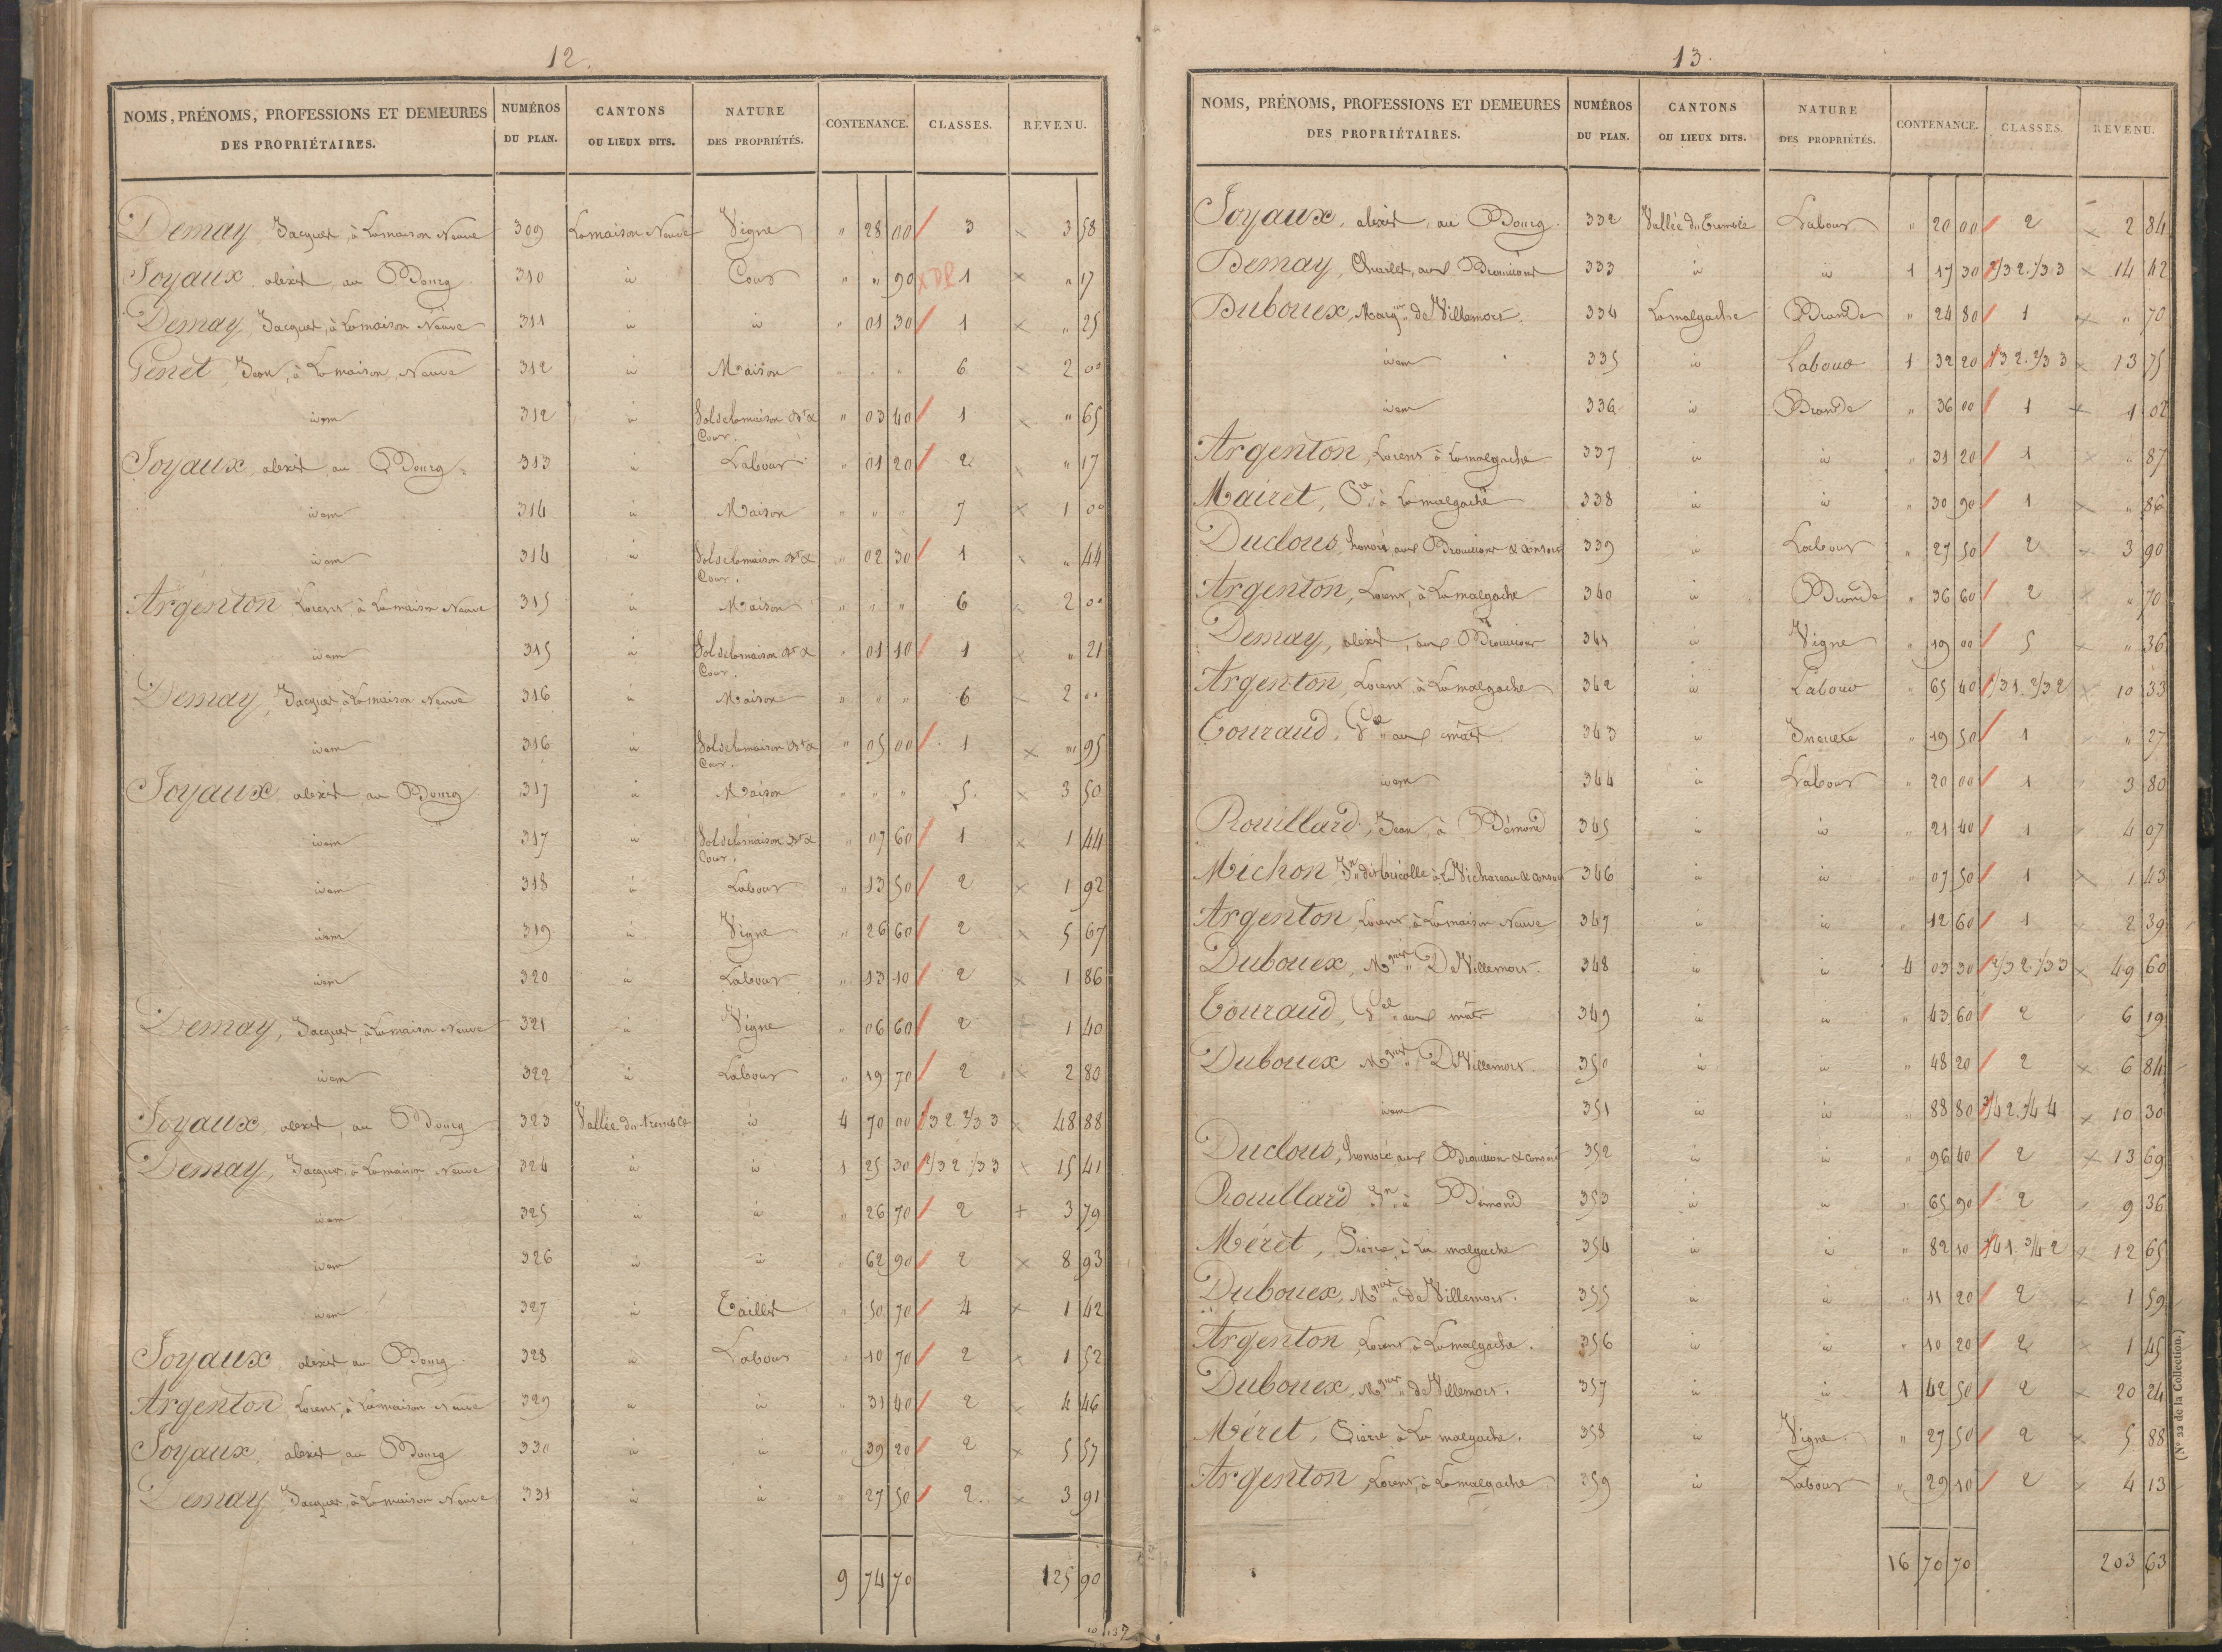 12.
NOMS, PRÉNOMS, PROFESSIONS ET DEMEURES DES PROPRIÉTAIRES. NUMÉROS DU PLAN. CANTONS OU LIEUX DITS. NATURE DES PROPRIÉTÉS. CONTENANCE. CLASSES. REVENU.
Demay, Jacques, à Lamaison Neuve 309 Lamaison Neuve Vigne " 28 00 3 3 58
Joyaux, alexis, au Bourg. 310 id Cour " " 90 X DP 1 " 17
Demay, Jacques, à Lamaison Neuve 311 id id " 01 30 1 " 25
Penet, Jean, à Lamaison Neuve 312 id Maison " " " 6 2 00
idem 312 id Sol de la maison Bt & Cour. " 03 40 1 " 65
Joyaux, alexis, au Bourg. 313 id Labour " 01 20 2 " 17
idem 314 id Maison " " " 7 1 00
idem 314 id Sol de la maison Bt & Cour. " 02 30 1 " 44
Argenton Lorens, à Lamaison Neuve 315 id Maison " " " 6 2 00
idem 315 id Sol de la maison Bt & Cour. " 01 10 1 " 21
Demay, Jacques, à Lamaison Neuve 316 id Maison " " " 6 2 00
idem 316 id Sol de la maison Bt & Cour. " 05 00 1 " 95
Joyaux alexis, au Bourg 317 id Maison " " " 5. 3 50
idem 317 id Sol de la maison Bt & Cour. " 07 60 1 1 44
idem 318 id Labour " 13 50 2 1 92
idem 319 id Vigne " 26 60 2 5 67
idem 320 id Labour " 13 10 2 1 86
Demay, Jacques, à Lamaison Neuve 321 id Vigne " 06 60 2 1 40
idem 322 id Labour " 19 70 2 2 80
Joyaux, alexis, au Bourg 323 Vallée du tremble id 4 70 00 1/3 2. 2/3 3 48 88
Demay, Jacques, à Lamaison Neuve 324 id id 1 25 30 2/3 2 1/3 3 15 41
idem 325 id id " 26 70 2 3 79
idem 326 id id " 62 90 2 8 93
idem 327 id Taillis " 50 70 4 1 42
Joyaux, alexis au Bourg. 328 id Labour " 10 70 2 1 52
Argenton, Lorens, à Lamaison Neuve 329 id id " 31 40 2 4 46
Joyaux, alexis, au Bourg 330 id id " 39 20 2 5 57
Demay, Jacques, à Lamaison Neuve 331 id id " 27 50 2. 3 91
9 74 70 125 90
13.
NOMS, PRÉNOMS, PROFESSIONS ET DEMEURES DES PROPRIÉTAIRES. NUMÉROS DU PLAN. CANTONS OU LIEUX DITS. NATURE DES PROPRIÉTÉS. CONTENANCE. CLASSES. REVENU.
Joyaux, alexis, au Bourg. 332 Vallée du Tremble Labour " 20 00 2 2 84
Demay, Charles, aux 333 id id 1 17 30 2/3 2. 1/3 3 14 42
Dubouex, Marqis de Villemors. 334 Lamalgache Brande " 24 80 1 " 70
idem 335 id Labour 1 32 20 1/3 2. 2/3 3 13 75
idem 336 id Brande " 36 00 1 1 02
Argenton, Lorens à Lamalgache 337 id id " 31 20 1 " 87
Mairet, à Lamalgache 338 id id " 30 90 1 " 86
Duclous, honoré aux & consors 339 id Labour " 27 50 2 3 90
Argenton, Lorens, à Lamalgache 340 id Brande " 36 60 2 " 70
Demay, alexis, aux 341 id Vigne " 19 00 5 " 36
Argenton, Lorens à Lamalgache 342 id Labour " 65 40 1/3 1. 2/3 2 10 33
Touraud, Ve aux 343 id Inculte " 19 50 1 " 27
idem 344 id Labour " 20 00 1 3 80
Rouillard, Jean, à Bémond 345 id id " 21 40 1 4 07
Michon Jn dis bricolle à & consors 346 id id " 07 50 1 1 43
Argenton, Lorens, à Lamaison Neuve 347 id id " 12 60 1 2 39
Dubouex, Mquis De Villemors. 348 id id 4 03 30 2/3 2. 1/3 3 49 60
Touraud, Ve aux 349 id id " 43 60 2 6 19
Dubouex Mquis De Villemors. 350 id id " 48 20 2 6 84
idem 351 id id " 88 80 3/4 2. 1/4 4 10 30
Duclous, honoré aux & consors 352 id id " 96 40 2 13 69
Rouillard Jn à Bémond 353 id id " 65 90 2 9 36
Méret, Pierre, à La malgache 354 id id " 82 10 1/4 1. 3/4 2 12 65
Dubouex, Mquis de Villemors. 355 id id " 11 20 2 1 59
Argenton, Lorens, à Lamalgache. 356 id id " 10 20 2 1 45
Dubouex, Mquis de Villemors. 357 id id 1 42 50 2 20 24
Méret, Pierre à La malgache. 358 id Vigne " 27 50 2 5 88
Argenton, Lorens, à Lamalgache 359 id Labour " 29 10 2 4 13
16 70 70 203 63
(No 22 de la Collection.)